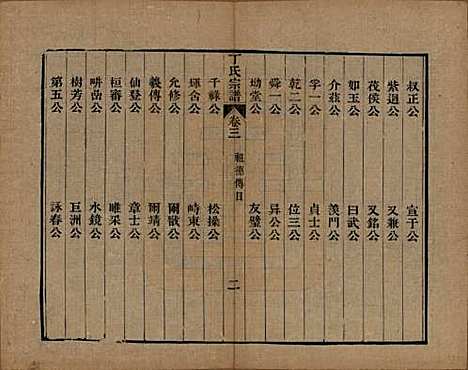 叔正公 宣于公
紫迴公 又兼公
茂侯公 又銘公
如玉公 曰武公
介莊公 羨門公
孚一公 貞士公
乾二公 位三公
舜一公 昇公
坳堂公 友璧公
丁氏宗譜 卷三 祖德傳目 二
千祿公 松操公
煇舍公 崎東公
允修公 爾戩公
義傳公 爾靖公
仙登公 章士公
桓審公 雎采公
畊嵒公 水鏡公
樹芳公 巨洲公
第五公 詠春公